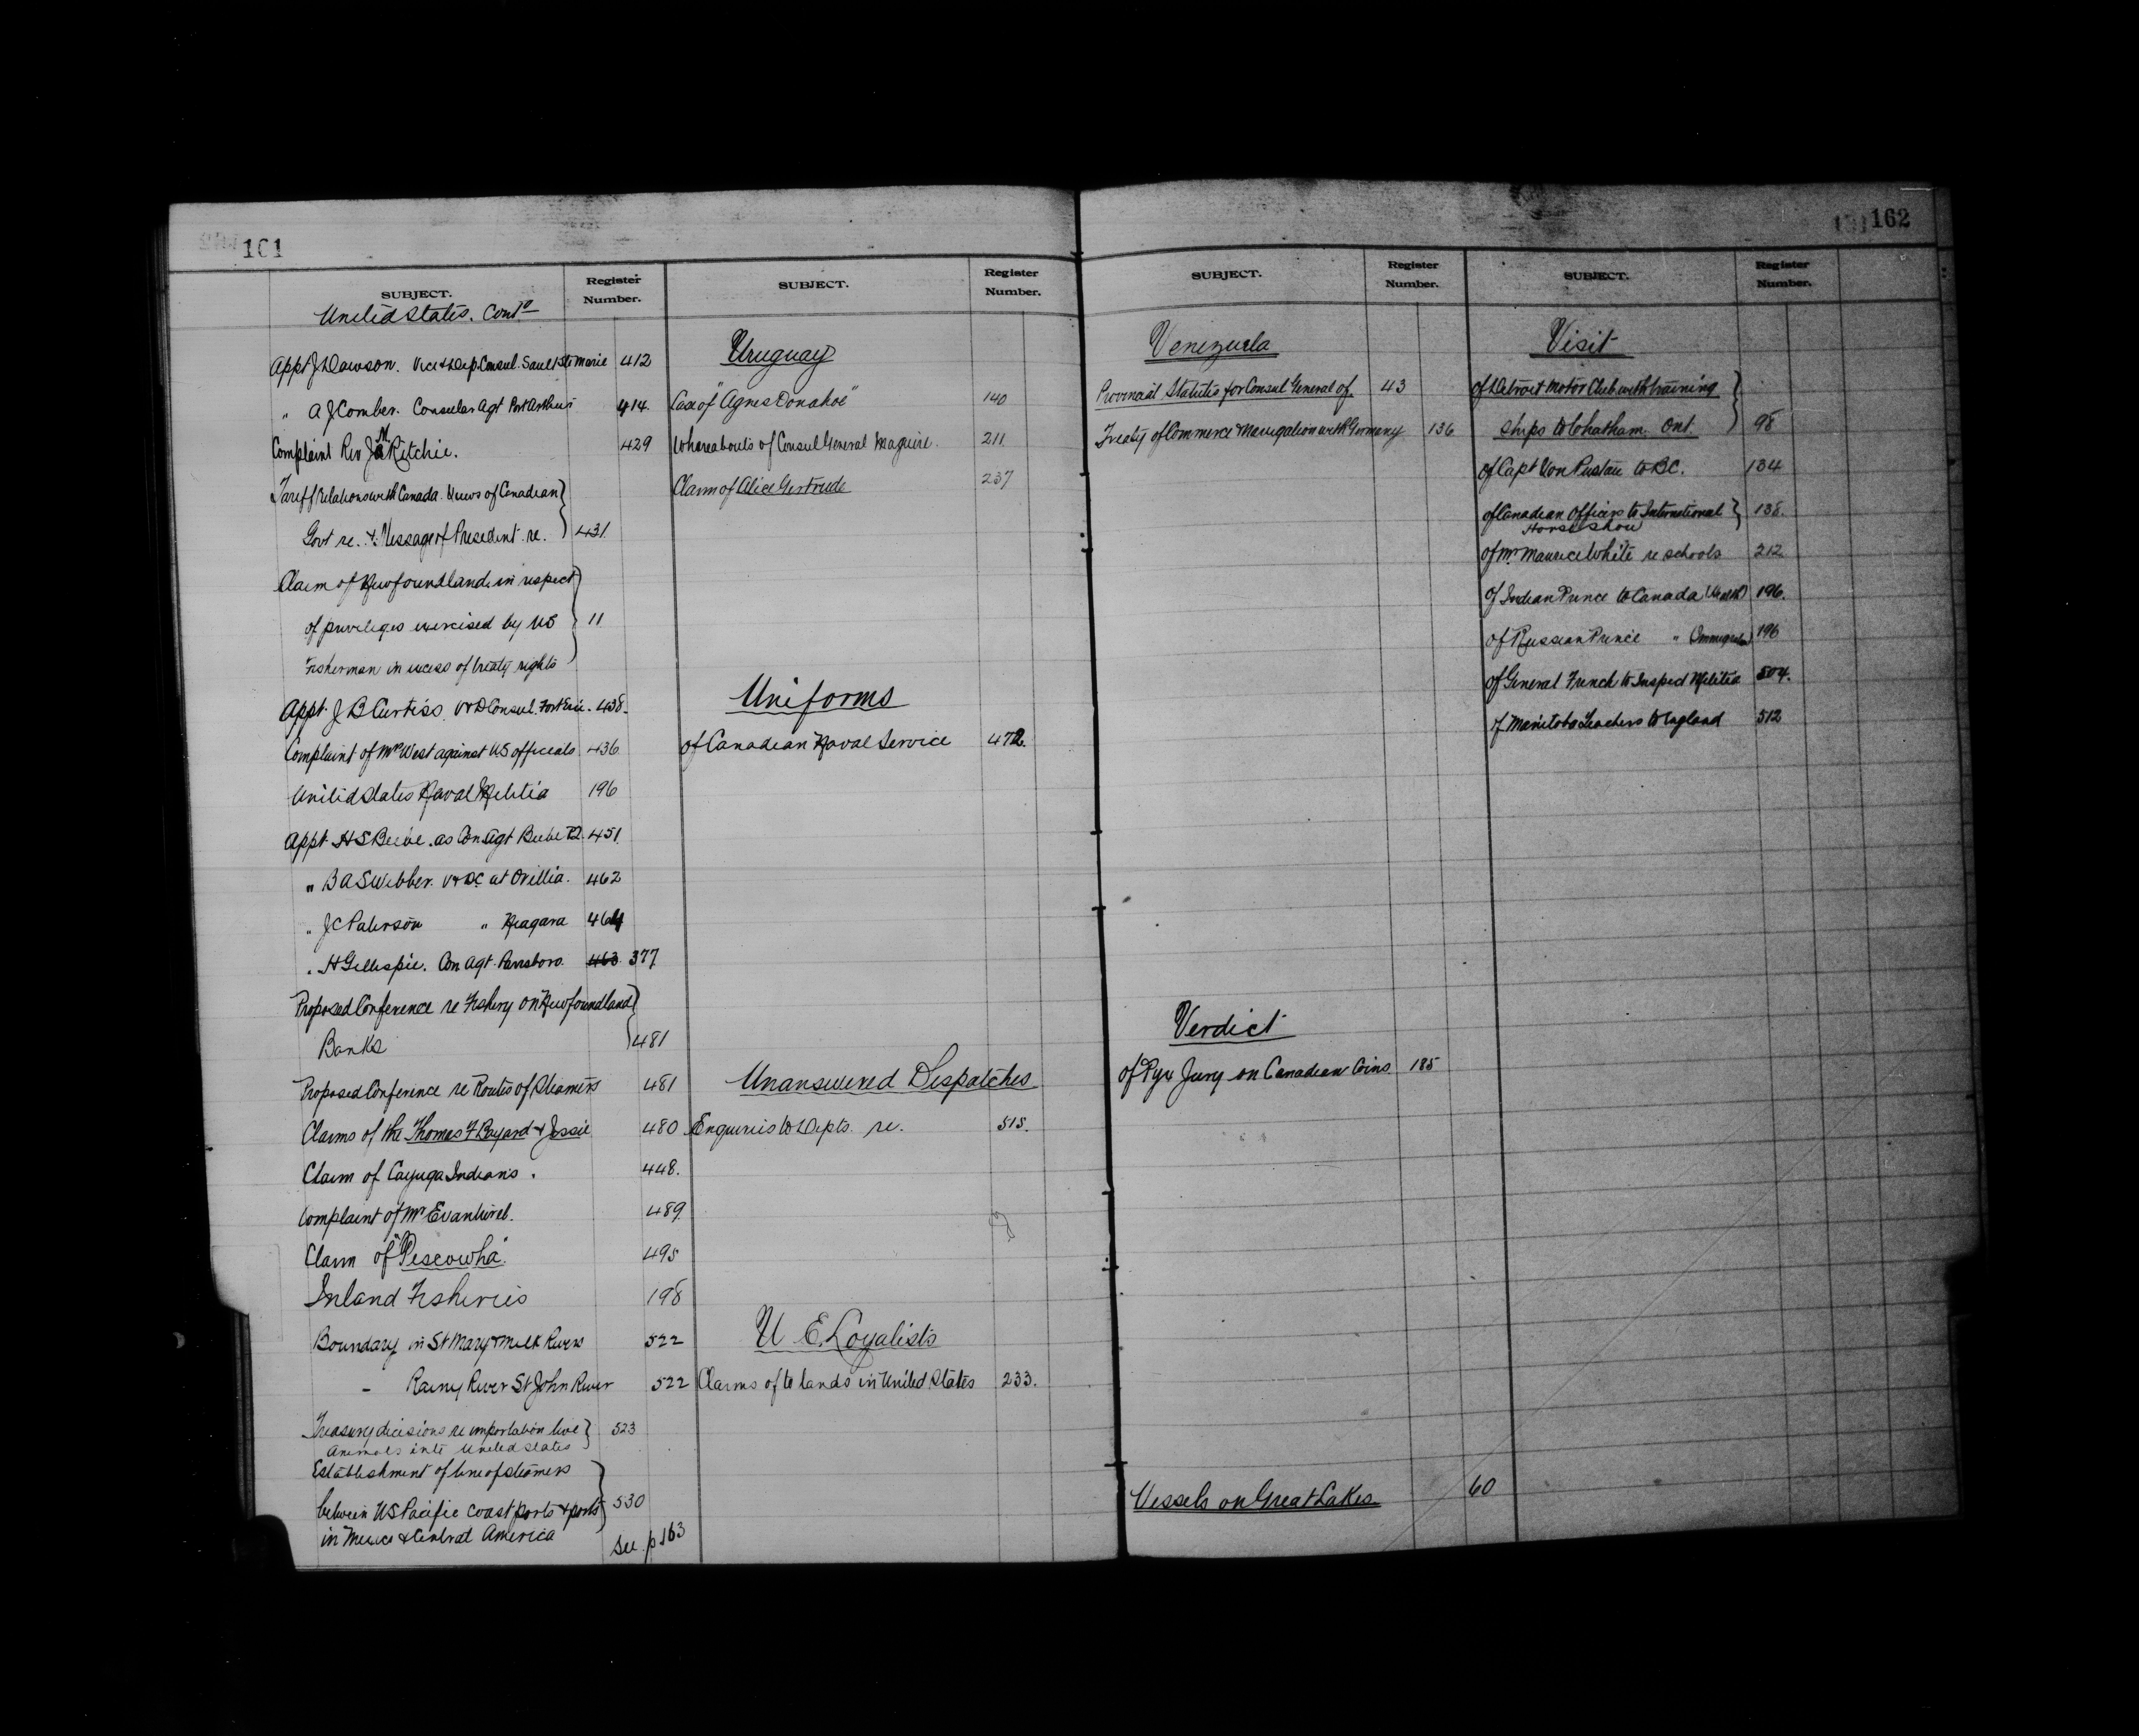 161
SUBJECT.
Register
Number.
United States. Contd
Appt J Dawson. Vice & Dep Consul. Sault Ste Marie 412
" A J Comber. Consular Agt Port Arthur 414.
Complaint Rev J M Ritchie. 429
Tariff relations with Canada. Views of Canadian
Govt re. & Message of President re. 431
Claim of Newfoundland in respect
of privileges exercised by US 11
Fisherman in excess of treaty rights
Appt. J B Curtiss. V & D Consul. Fort Erie. 438.
Complaint of Mrs West against US officials 436
United States Naval Militia 196
Appt. H S Beebe. as Con Agt Beebe 451.
" B A S Webber. V & DC at Orillia. 462
" J C Paterson " Niagara 464
" H Gillespie. Con Agt. Parrsboro. 463 377
Proposed Conference re Fishery on Newfoundland
Banks 481
Proposed Conference re Routes of Steamers 481
Claims of the Thomas F Bayard & Jessie 480
Claim of Cayuga Indians. 448.
Complaint of Mr 489.
Claim of "Pescowha". 495
Inland Fisheries 198
Boundary in St Mary & Milk Rivers 522
- Rainy River St John River 522
Treasury decisions re importation live
Animals into United States 523
Establishment of line of steamers
between US Pacific Coast ports & ports 530
in Mexico & Central America
See p 163
SUBJECT.
Register
Number.
Uruguay
Case of "Agnes Donahoe" 140
Whereabouts of Consul General Maguire. 211
Claim of Alice Gertrude 237
Uniforms
of Canadian Naval Service 472.
Unanswered Despatches
Enquiries to Depts. re. 515.
U E. Loyalists
Claims of to lands in United States 233.
162
SUBJECT.
Register
Number.
Venezuela
Provincial Statutes for Consul General of. 43
Treaty of Commerce & Navigation with Germany 136
Verdict
of Pyx Jury on Canadian Coins. 185
Vessels on Great Lakes. 60
SUBJECT.
Register
Number.
Visit
of Detroit Motor Club with training
ships to Chatham. Ont. 98
of Capt Von Pustau to BC. 134
of Canadian Officers to International
Horse Show 138.
of Mr Maurice White re schools 212
of Indian Prince to Canada 196.
of Russian Prince " 196
of General French to Inspect Militia 504.
of Manitoba Teachers to England 512